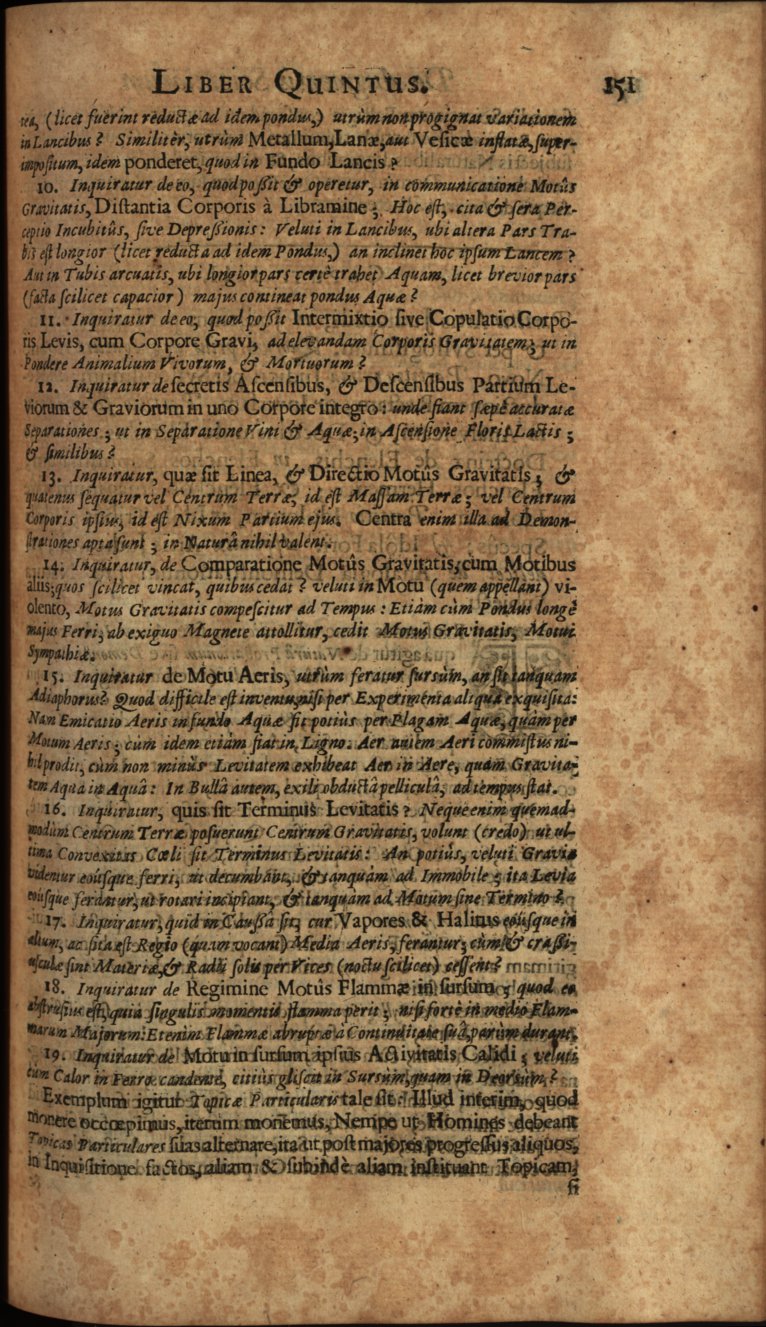 LIBER QUINTUS. 151
tea, (licet fuerint reductæ ad idem pondus,) utrùm non progignat variationem
in Lancibus? Similitèr, utrùm Metallum, Lanæ, aut Vesicæ inflatæ, super-
impositum, idem ponderet, quod in Fundo Lancis?
10. Inquiratur de eo, quod possit & operetur, in communicatione Motûs
Gravitatis, Distantia Corporis à Libramine; Hoc est, cita & sera Per-
ceptio Incubitûs, sive Depressionis: Veluti in Lancibus, ubi altera Pars Tra-
bis est longior (licet reducta ad idem Pondus,) an inclinet hoc ipsum Lancem?
Aut in Tubis arcuatis, ubi longior pars certè trahet Aquam, licet brevior pars
(facta scilicet capacior) majus contineat pondus Aquæ?
11. Inquiratur de eo, quod possit Intermixtio sive Copulatio Corpo-
ris Levis, cum Corpore Gravi, ad elevandam Corporis Gravitatem; ut in
Pondere Animalium Vivorum, & Mortuorum?
12. Inquiratur de secretis Ascensibus, & Descensibus Partium Le-
viorum & Graviorum in uno Corpore integro: unde fiant sæpè accuratæ
Separationes; ut in Separatione Vini & Aquæ; in Ascensione Floris Lactis;
& similibus?
13. Inquiratur, quæ sit Linea, & Directio Motûs Gravitatis; &
quatenus sequatur vel Centrum Terræ, id est Massam Terræ; vel Centrum
Corporis ipsius, id est Nixum Partium ejus. Centra enim illa ad Demon-
strationes apta sunt; in Naturâ nihil valent.
14. Inquiratur, de Comparatione Motûs Gravitatis, cum Motibus
aliis; quos scilicet vincat, quibus cedat? veluti in Motu (quem appellant) vi-
olento, Motus Gravitatis compescitur ad Tempus: Etiam cùm Pondus longè
majus Ferri, ab exiguo Magnete attollitur, cedit Motus Gravitatis, Motui
Sympathiæ.
15. Inquiratur de Motu Aeris, utrùm feratur sursùm, an sit tanquam
Adiaphorus? Quod difficile est inventu, nisi per Experimenta aliqua exquisita:
Nam Emicatio Aeris in fundo Aquæ fit potiùs per Plagam Aquæ, quam per
Motum Aeris; cùm idem etiam fiat in Ligno. Aer autem Aeri commistus ni-
hil prodit, cùm non minùs Levitatem exhibeat Aer in Aere, quàm Gravita-
tem Aqua in Aquâ: In Bullâ autem, exili obductâ pelliculâ, ad tempus stat.
16. Inquiratur, quis sit Terminus Levitatis? Neque enim quemad-
modùm Centrum Terræ posuerunt Centrum Gravitatis, volunt (credo) ut ul-
tima Convexitas Cœli sit Terminus Levitatis: An potiùs, veluti Gravia
videntur eoùsque ferri, ut decumbant, & tanquàm ad Immobile; ita Levia
eoùsque ferantur, ut rotari incipiant, & tanquam ad Motum sine Termino?
17. Inquiratur, quid in Caussâ sit, cur Vapores & Halitus eoùsque in
altum, ac sita est Regio (quam vocant) Media Aeris, ferantur; cùm & crassi-
usculæ sint Materiæ, & Radii solis per Vices (noctu scilicet) cessent?
18. Inquiratur de Regimine Motûs Flammæ in sursum; quod eo
abstrusius est, quia singulis momentis flamma perit; nisi fortè in medio Flam-
marum Majorum: Etenim Flammæ abruptæ à Continuitate suâ, parùm durant.
19. Inquiratur de Motu in sursum ipsius Activitatis Calidi; veluti
cùm Calor in Ferro candente, citiùs gliscit in Sursùm, quam in Deorsùm?
Exemplum igitur Topicæ Particularis tale sit: Illud interim, quod
monere occœpimus, iterum monemus, Nempe ut Homines debeant
Topicas Particulares suas alternare, ita ut post majores progressus aliquos,
in Inquisitione factos, aliam & subindè aliam instituant Topicam,
si